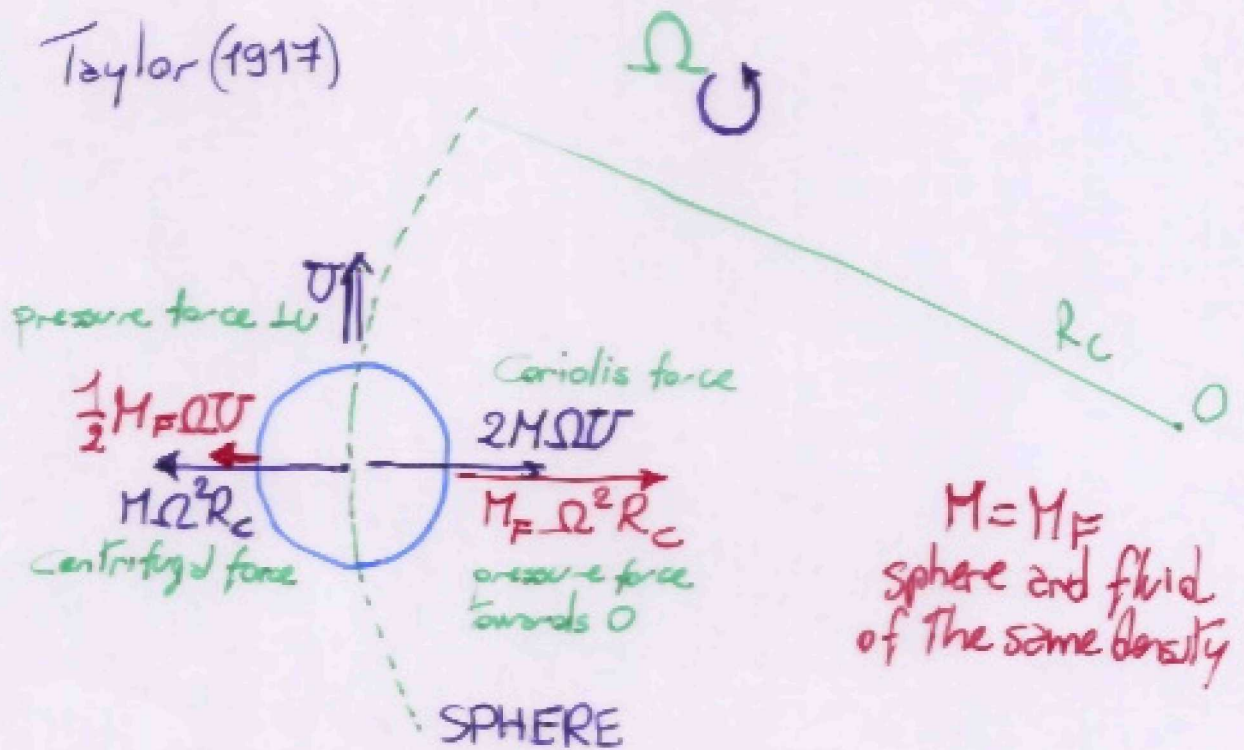 Taylor (1917)
Ω
U
pressure force ⊥U
Rc
O
Coriolis force
½MFΩU
2MΩU
MΩ²Rc
MFΩ²Rc
Centrifugal force
pressure force
towards O
M=MF
sphere and fluid
of the same density
SPHERE